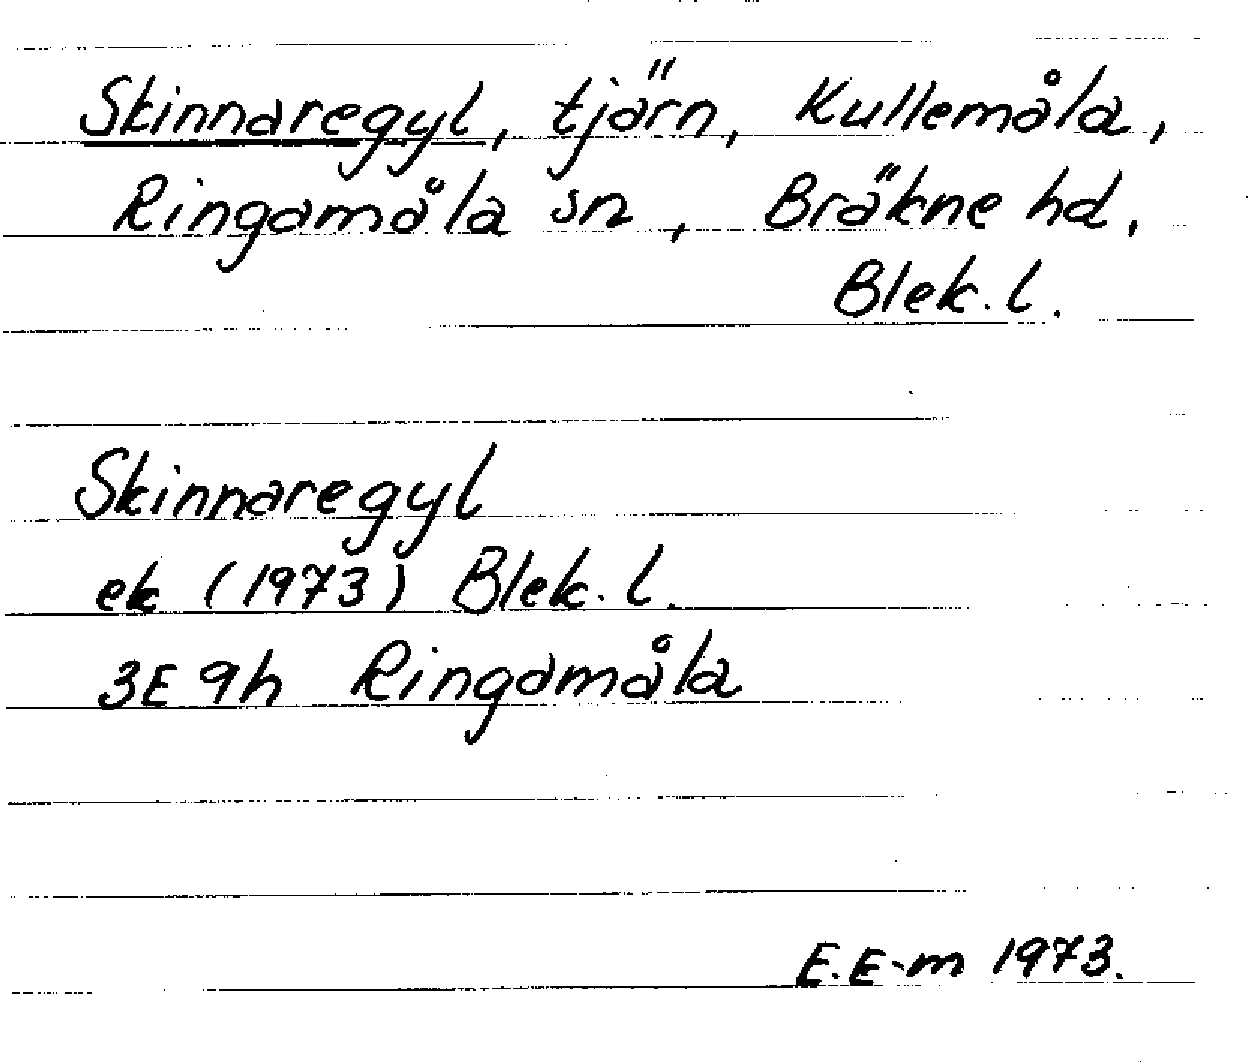 Skinnaregyl, tjärn, Kullemåla,
Ringamåla sn, Bräkne hd,
Blek. l.
Skinnaregyl
ek (1973) Blek. l.
3E 9h Ringamåla
E.E-m 1973.